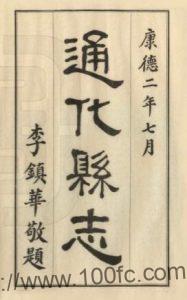 康德二年七月
通化縣志
李鎮華敬題
://www.100fc.com